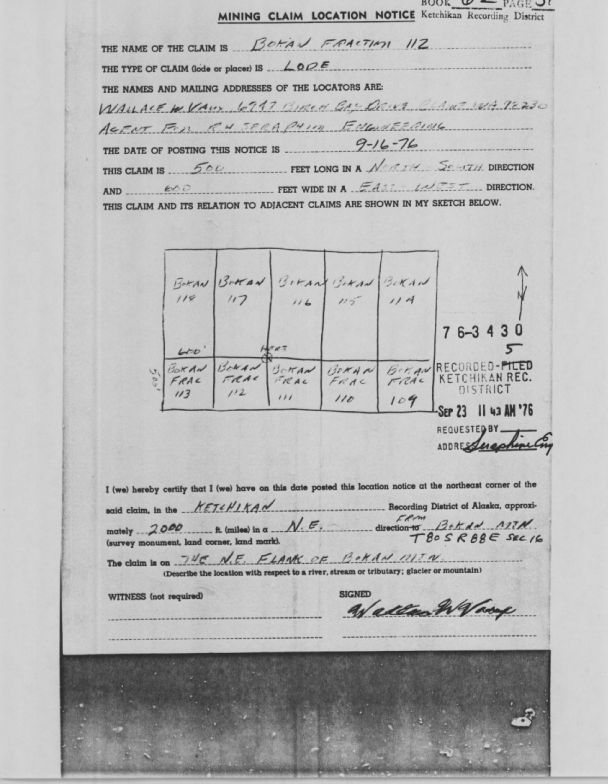 BOOK 62 PAGE
MINING CLAIM LOCATION NOTICE Ketchikan Recording District
THE NAME OF THE CLAIM IS BOKAN FRACTION 112
THE TYPE OF CLAIM (lode or placer) IS LODE
THE NAMES AND MAILING ADDRESSES OF THE LOCATORS ARE:
WALLACE W VAUX 6747 BIRCH BAY DRIVE BLAINE WA 98230
AGENT FOR R.H SERAPHIM ENGINEERING
THE DATE OF POSTING THIS NOTICE IS 9-16-76
THIS CLAIM IS 500 FEET LONG IN A NORTH SOUTH DIRECTION
AND 600 FEET WIDE IN A EAST WEST DIRECTION.
THIS CLAIM AND ITS RELATION TO ADJACENT CLAIMS ARE SHOWN IN MY SKETCH BELOW.
BOKAN BOKAN BOKAN BOKAN BOKAN
118 117 116 115 114
N
600' HERE
500'
BOKAN BOKAN BOKAN BOKAN BOKAN
FRAC FRAC FRAC FRAC FRAC
113 112 111 110 109
76-3430
5
RECORDED-FILED
KETCHIKAN REC.
DISTRICT
SEP 23 11 43 AM '76
REQUESTED BY
ADDRESS Seraphim Eng
I (we) hereby certify that I (we) have on this date posted this location notice at the northeast corner of the
said claim, in the KETCHIKAN Recording District of Alaska, approxi-
mately 2000 ft. (miles) in a N.E. direction to FROM BOKAN MTN
(survey monument, land corner, land mark). T80S R88E SEC 16
The claim is on THE N.E. FLANK OF BOKAN MTN.
(Describe the location with respect to a river, stream or tributary; glacier or mountain)
WITNESS (not required) SIGNED
Wallace W Vaux